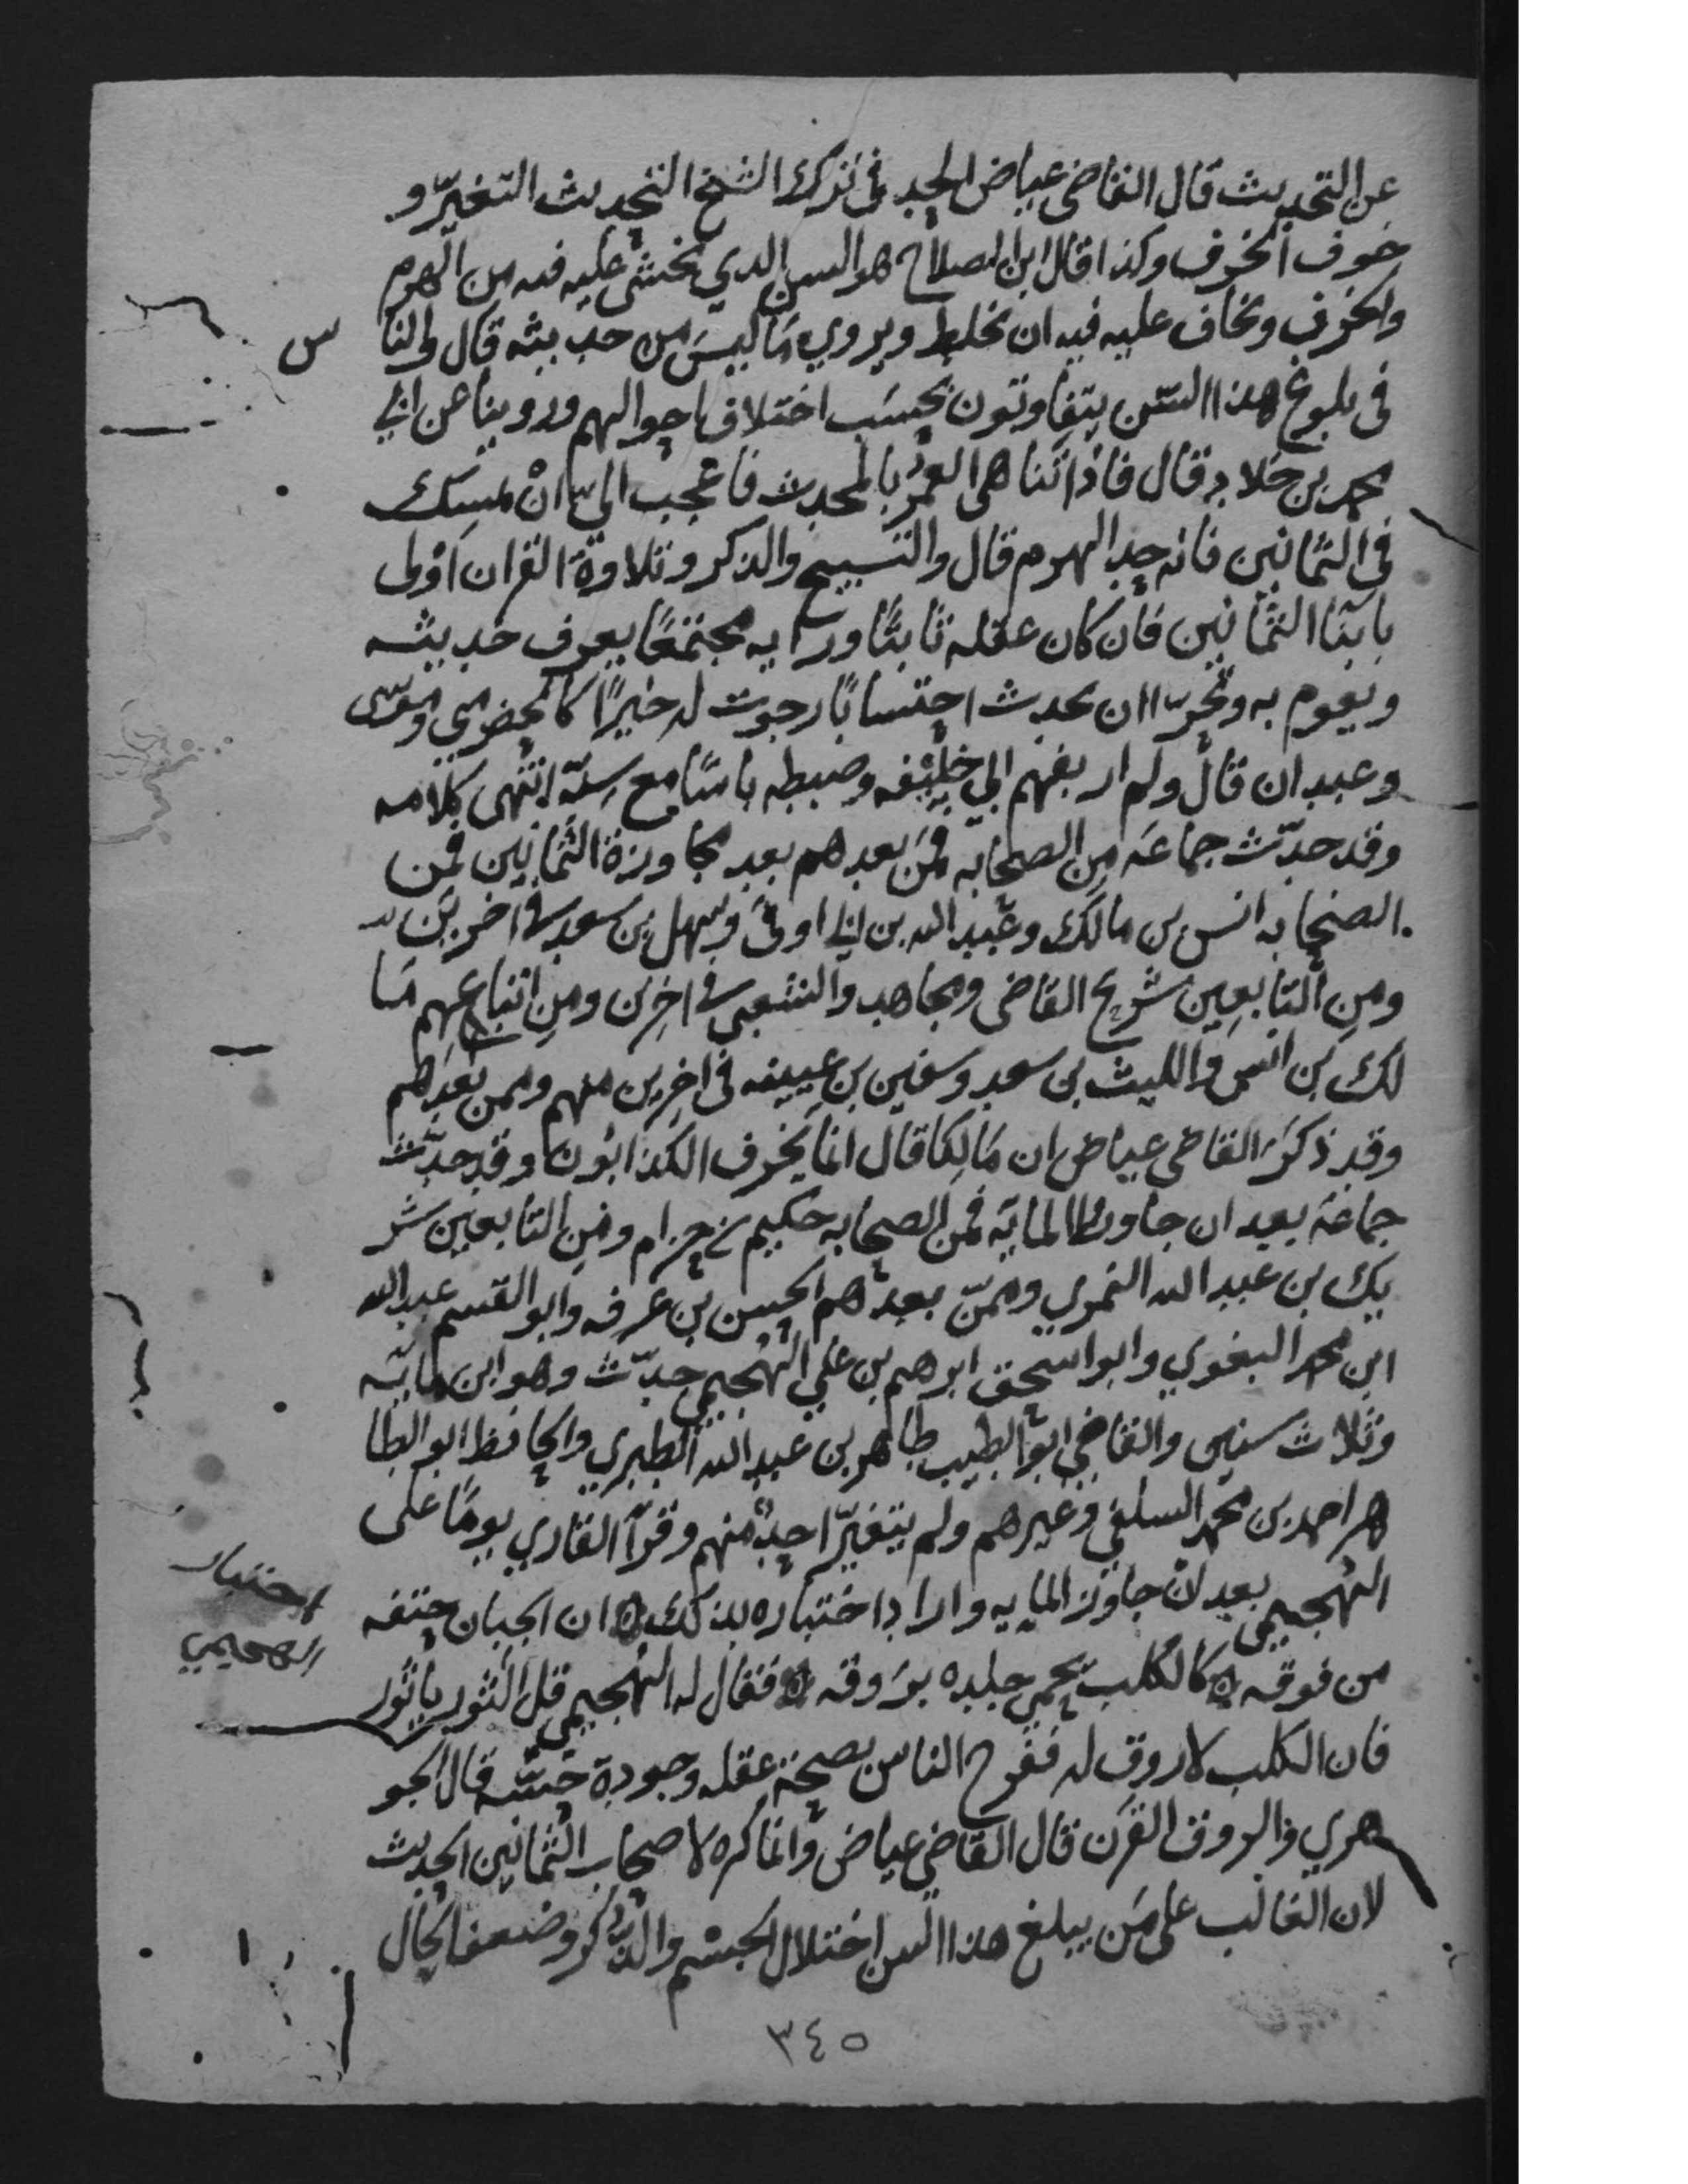 عن التحديث قال القاضي عياض الحد في ترك الشيخ التحديث التغيّر و
خوف الخرف وكذا قال ابن الصلاح هو السن الذي يخشى عليه فيه من الهرم
والخرف ويخاف عليه فيه ان يخلط ويروي ما ليس من حديثه قال والنا
س
في بلوغ هذا السن يتفاوتون بحسب اختلاف احوالهم وروينا عن ابي
محمد بن خلاد قال فاذا تناهى العمر بالمحدث فاعجب اليّ ان يمسك
في الثمانين فانه حد الهرم قال والتسبيح والذكر وتلاوة القران اولى
بابنا الثمانين فان كان عقله ثابتًا ورايه مجتمعًا يعرف حديثه
ويقوم به وتحرّا ان يحدث احتسابًا رجوت له خيرًا كالحضرمي وموسى
وعبدان قال ولم ار بفهم ابي خليفه وضبطه باسًا مع سنّه انتهى كلامه
وقد حدّث جماعه من الصحابه فمن بعدهم بعد مجاوزة الثمانين فمن
الصحابه انس بن مالك وعبد الله بن ابي اوفى وسهل بن سعد في اخرين
ومن التابعين شريح القاضي ومجاهد والشعبي في اخرين ومن اتباعهم ما
لك بن انس والليث بن سعد وسفين بن عيينه في اخرين منهم وممن بعدهم
وقد ذكر القاضي عياض ان مالكا قال انما يخرف الكذابون وقد حدّث
جماعة بعد ان جاوزوا الماية فمن الصحابه حكيم بن حزام ومن التابعين شر
يك بن عبد الله النمري وممن بعدهم الحسن بن عرفه وابو القسم عبد الله
ابن محمد البغوي وابو اسحق ابرهيم بن علي الهجيمي حدّث وهو ابن مايه
وثلاث سنين والقاضي ابو الطيب طاهر بن عبد الله الطبري والحافظ ابو الطا
هر احمد بن محمد السلفي وغيرهم ولم يتغيّر احد منهم وقرأ القاري يومًا على
الهجيمي بعد ان جاوز المايه واراد اختباره بذلك ان الجبان حتفه
اختبار
الهجيمي
من فوقه كالكلب يحمي جلده بروقه فقال له الهجيمي قل الثور يا ثور
فان الكلب لا روق له ففرح الناس بصحة عقله وجودة حسّه قال الجو
هري والروق القرن قال القاضي عياض وانما كره لاصحاب الثمانين الحديث
لان الغالب على من يبلغ هذا السن اختلال الجسم والذكر وضعف الحال
٣٤٥